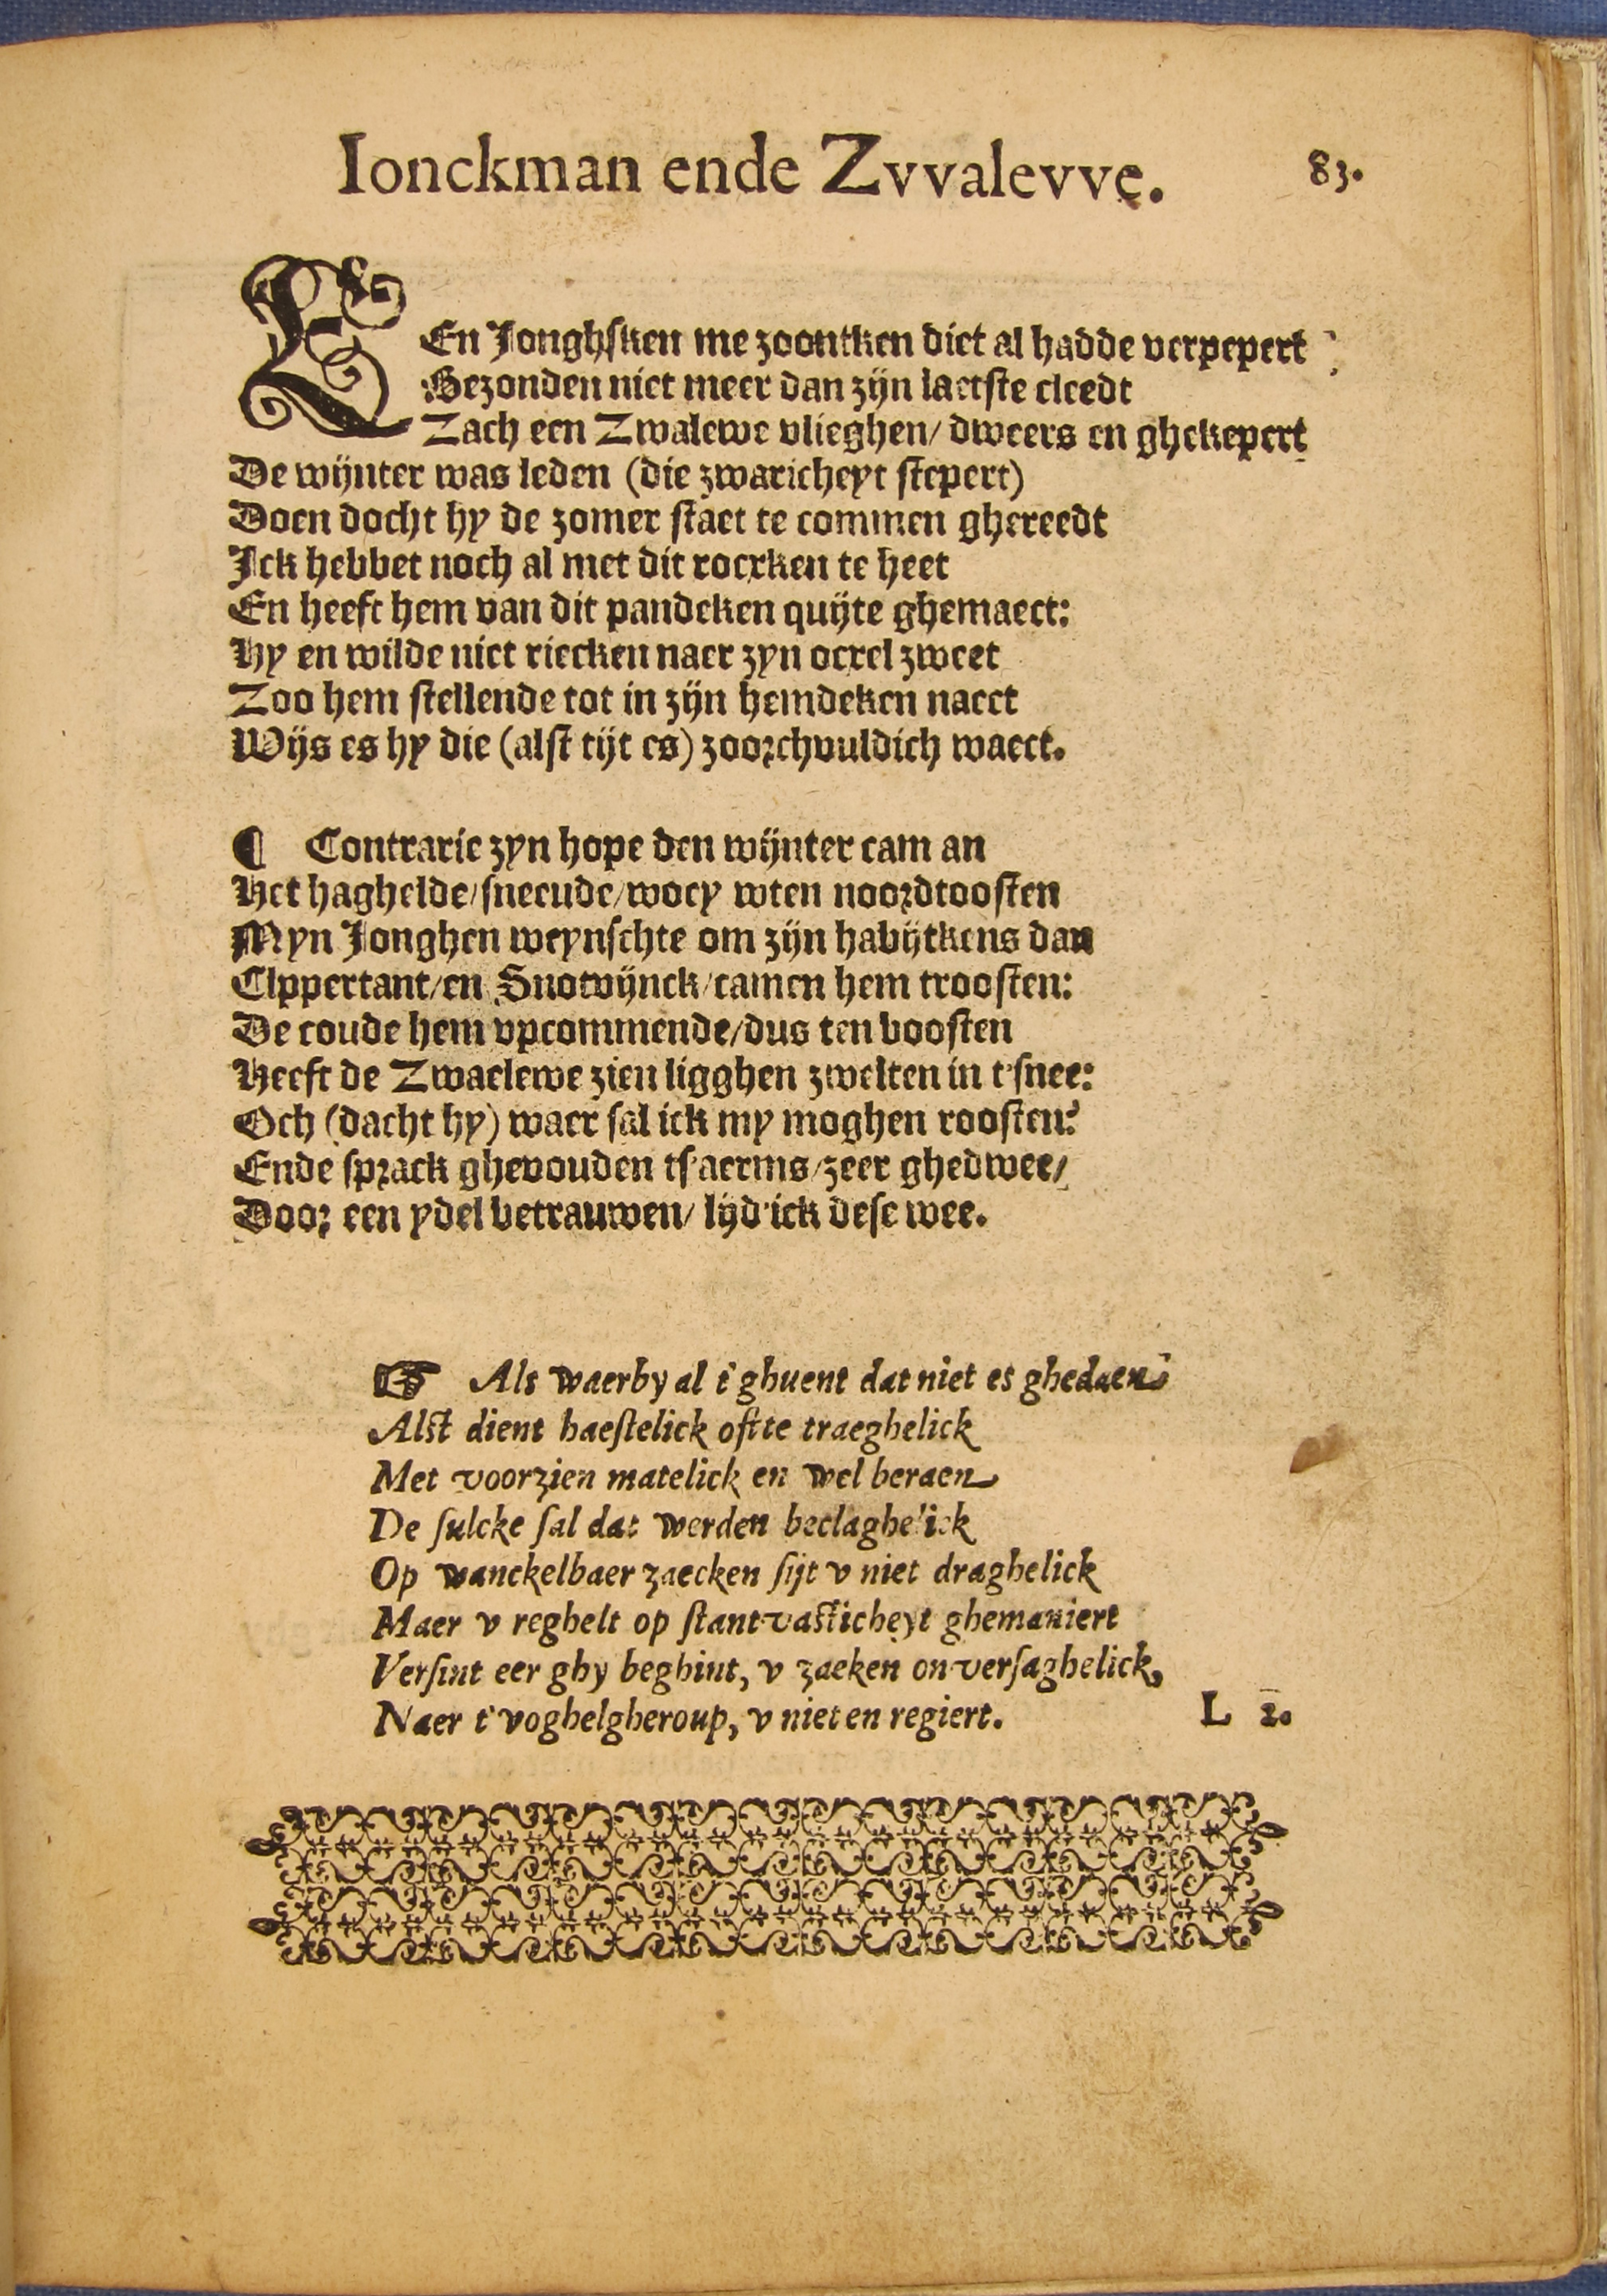 Ionckman ende Zvvalevve. 83.
EEn Jonghsken me zoontken diet al hadde verpepert
Gezonden niet meer dan zijn laetste cleedt
Zach een Zwalewe vlieghen/ dweers en ghekepert
De wijnter was leden (die zwaricheyt stepert)
Doen docht hy de zomer staet te commen ghereedt
Ick hebbet noch al met dit rocxken te heet
En heeft hem van dit pandeken quijte ghemaect:
Hy en wilde niet riecken naer zyn ocxel zweet
Zoo hem stellende tot in zijn hemdeken naect
Wijs es hy die (alst tijt es) zoorchvuldich waect.
¶ Contrarie zyn hope den wijnter cam an
Het haghelde/sneeude/woey wten noordtoosten
Myn Jonghen weynschte om zijn habijtkens dan
Clppertant/en Snotvijnck/camen hem troosten:
De coude hem vpcommende/dus ten boosten
Heeft de Zwaelewe zien ligghen zwelten in t'snee:
Och (dacht hy) waer sal ick my moghen roosten?
Ende sprack ghevouden ts'aerms/zeer ghedwee/
Door een ydel betrauwen/ lijd'ick dese wee.
☞ Als waerby al t'ghuent dat niet es ghedaen
Alst dient haestelick ofte traeghelick
Met voorzien matelick en wel beraen
De sulcke sal dat werden beclaghelick
Op wanckelbaer zaecken sijt v niet draghelick
Maer v reghelt op stantvasticheyt ghemaniert
Versint eer ghy beghint, v zaeken onversaghelick,
Naer t'voghelgheroup, v niet en regiert.
L 2.